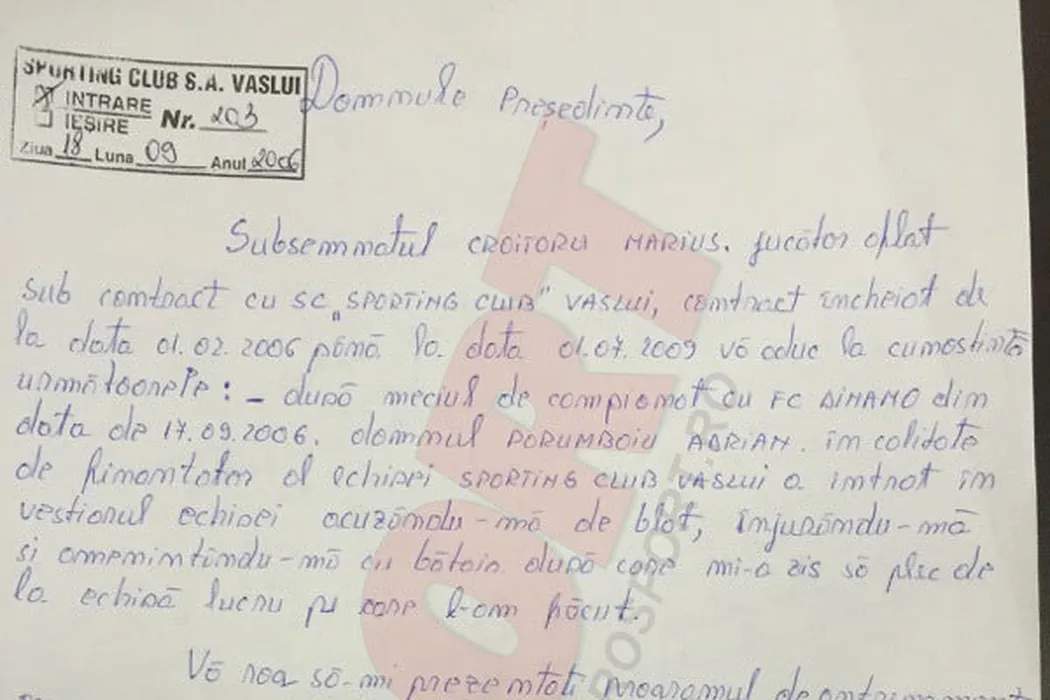 SPORTING CLUB S.A. VASLUI
INTRARE
IEȘIRE Nr. 203
Ziua 18 Luna 09 Anul 2006
Domnule Președinte,
Subsemnatul CROITORU MARIUS. jucător aflat
sub contract cu SC „SPORTING CLUB" VASLUI, contract încheiat de
la data 01.02.2006 pănă la data 01.07.2009 vă aduc la cunostintă
următoarele: - după meciul de campionat cu FC DINAMO din
data de 17.09.2006. domnul PORUMBOIU ADRIAN. în calitate
de finantator al echipei SPORTING CLUB VASLUI a intrat în
vestiarul echipei acuzăndu-mă de blat, înjurăndu-mă
si amenintăndu-mă cu bătaia după care mi-a zis să plec de
la echipă lucru pe care l-am făcut.
Vă rog să-mi prezentati programul de antrenament
ORT
PROSPORT.RO